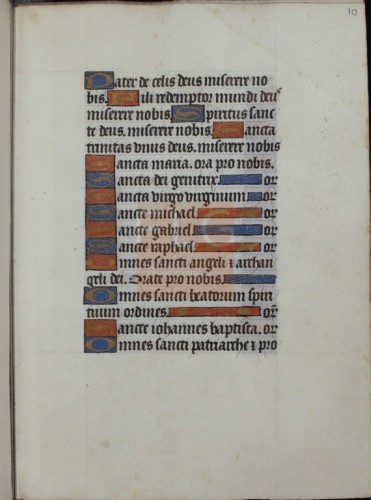 10
Pater de celis deus miserere no
bis. Fili redemptor mundi deus
miserere nobis. Spiritus sanc
te deus. miserere nobis. Sancta
trinitas vnus deus. miserere nobis
Sancta maria. ora pro nobis.
Sancta dei genitrix. or
Sancta virgo virginum or
Sancte michael. or
Sancte gabriel. or
Sancte raphael. or
Omnes sancti angeli ⁊ archan
geli dei. Orate pro nobis.
Omnes sancti beatorum spiri
tuum ordines. or
Sancte iohannes baptista. or
Omnes sancti patriarche ⁊ pro